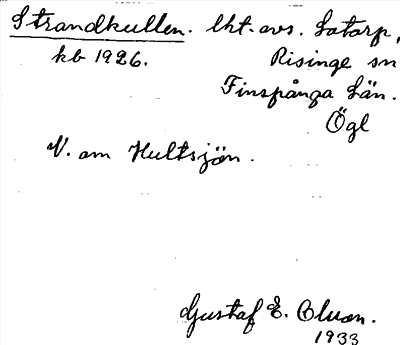 Strandkullen. lht. avs. Satorp,
kb 1926. Risinge sn
Finspånga Län.
Ögl
V. om Hultsjön.
Gustaf E.
1933